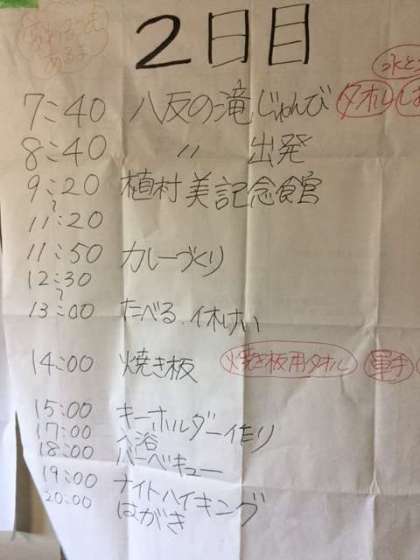 2日目
水と
7:40 八反の滝じゅんび タオル
8:40 〃 出発
9:20 植村美記念食官
〜
11:20
11:50 カレーづくり
12:30
〜
13:00 たべる、休けい
14:00 焼き板 焼き板用タオル 軍手
15:00 キーホルダー作り
17:00 入浴
18:00 バーベキュー
19:00 ナイトハイキング
20:00 はがき